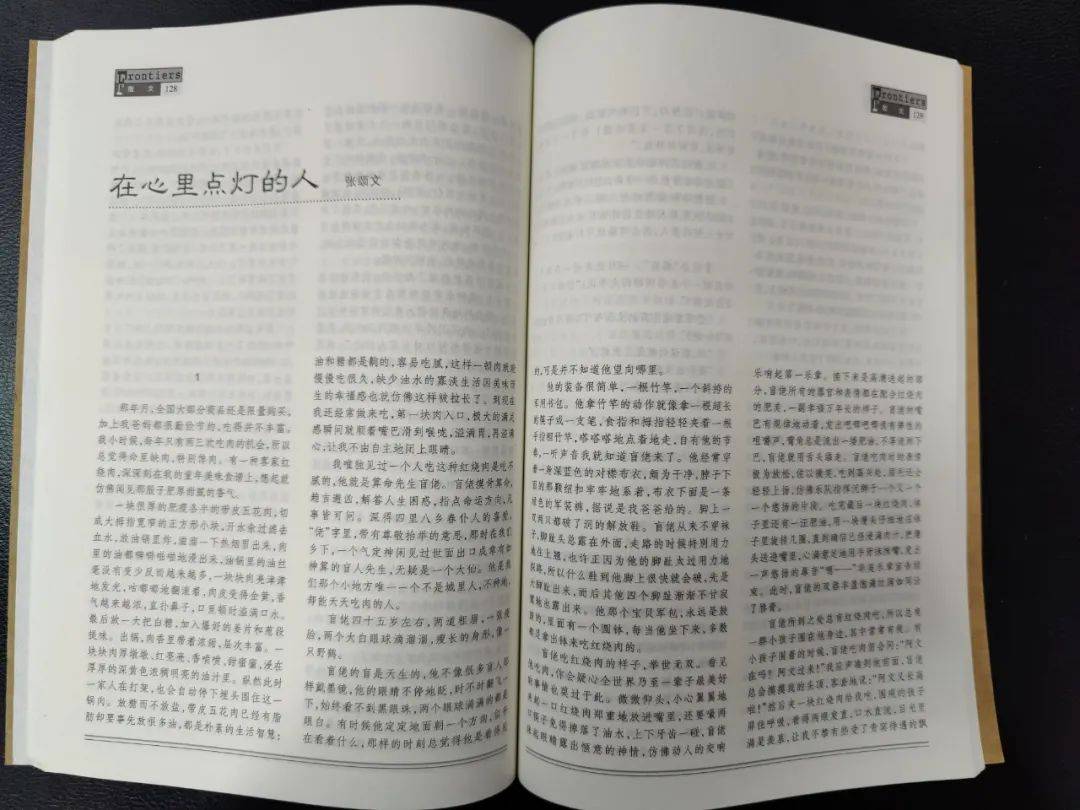 Frontiers
散 文 128
在心里点灯的人 张颂文
1
那年月，全国大部分商品还是限量购买，
加上我爸妈都很勤俭节约，吃得并不丰富。
我小时候，每年只有两三次吃肉的机会，所以
总觉得命里缺肉，特别馋肉。有一种客家红
烧肉，深深刻在我的童年美味食谱上，想起就
仿佛闻见那股子肥厚甜腻的香气。
一块很厚的肥瘦各半的带皮五花肉，切
成大拇指宽窄的正方形小块，开水汆过滤去
血水，放油锅里炸，滋滋一下热烟冒出来，肉
里的油都噼噼啪啪地浸出来，油锅里的油丝
毫没有变少反而越来越多，一块块肉亮津津
地发光，咕嘟嘟地翻滚着，肉皮变得金黄，香
气越来越浓，直扑鼻子，口里顿时溢满口水。
最后放一大把白糖，加入爆好的姜片和葱段
提味。出锅，肉香里带着浓甜，层次丰富。一
块块肉厚墩墩、红亮亮、香喷喷，甜蜜蜜，浸在
厚厚的深黄色浓稠明亮的油汁里。纵然此时
一家人在打架，也会自动停下埋头围住这一
锅肉。放糖而不放盐，带皮五花肉已经有脂
肪却要事先放很多油，都是朴素的生活智慧：
油和糖都是齁的，容易吃腻，这样一顿肉就能
慢慢吃很久，缺少油水的寡淡生活因美味而
生的幸福感也就仿佛这样被拉长了。到现在
我还经常做来吃，第一块肉入口，极大的满足
感瞬间就顺着嘴巴滑到喉咙，溢满胃，再溢满
心，让我不由自主地闭上眼睛。
我唯独见过一个人吃这种红烧肉是吃不
腻的，他就是算命先生盲佬。盲佬摸骨算命，
趋吉避凶，解答人生困惑，指点命运方向，凡
事皆可问。深得四里八乡春仆人的喜爱，
“佬”字里，带有尊敬抬举的意思，那时在我们
乡下，一个气定神闲见过世面出口成章有如
神算的盲人先生，无疑是一个大仙。他是我
们那个小地方唯一一个不是城里人，不种地，
却能天天吃肉的人。
盲佬四十五岁左右，两道粗眉，一张瘦
脸，两个大白眼球滴溜溜，瘦长的身形，像一
只野鹤。
盲佬的盲是天生的，他不像很多盲人那
样戴墨镜，他的眼睛不停地眨，时不时翻飞一
下，始终看不到黑眼珠，两个眼球满满的都是
眼白。有时候他定定地面朝一个方向，似乎
在看着什么，那样的时刻总觉得他是看得见
Frontiers
散 文 129
的，可是并不知道他望向哪里。
他的装备很简单，一根竹竿，一个斜挎的
军用书包。他拿竹竿的动作就像拿一根超长
的筷子或一支笔，食指和拇指轻轻夹着一根
手指粗竹竿，嗒嗒嗒地点着地走，自有他的节
奏，一听声音我就知道盲佬来了。他经常穿
着一身深蓝色的对襟布衣，颇为干净，脖子下
面的那颗纽扣牢牢地系着，布衣下面是一条
绿色的军装裤，据说是我爸爸给的。脚上一
双两只都破了洞的解放鞋。盲佬从来不穿袜
子，脚趾头总露在外面，走路的时候特别用力
地往上翘，也许正因为他的脚趾太过用力地
探路，所以什么鞋到他脚上很快就会破，先是
大脚趾出来，而后其他四个脚趾渐渐不甘寂
寞地也露出来。他那个宝贝军包，永远是鼓
鼓的，里面有一个圆钵，每当他坐下来，多数
都是拿出钵来吃红烧肉的。
盲佬吃红烧肉的样子，举世无双。看见
他吃肉，你会疑心全世界乃至一辈子最美好
的事情也莫过于此。微微仰头，小心翼翼地
夹起一口红烧肉郑重地放进嘴里，还要嘬两
口筷子免得掸落了油水，上下牙齿一碰，盲佬
眯起眼睛露出惬意的神情，仿佛动人的交响
乐响起第一乐章。接下来是高潮迭起的部
分，盲佬所有的器官和表情都在配合红烧肉
的肥美，一副享誉万年长的样子。盲佬的嘴
巴有规律地动着，发出吧唧吧唧很有弹性的
咀嚼声，嘴角总是流出一缕肥油，不等送到下
巴，盲佬就用舌头舔走。盲佬吃肉时的表情
极为放松，佐以微笑，吃到高兴处，眉毛还会
轻轻上扬，仿佛乐队指挥沉醉于一个又一个
个悠扬的片段。吃完最后一块红烧肉，钵
子里还有一汪肥油，用一块馒头仔细地在钵
子里旋擦几圈，直到确信已经浸满肉汁，把馒
头送进嘴里，心满意足地用手背抹抹嘴，发出
一声悠扬的鼻音“嗯——”，
表。此时，盲佬的双唇丰盈饱满红润如同涂
了唇膏。
盲佬所到之处总有红烧肉吃，所以总有
一群小孩子围在他身边，其中常常有我。有
小孩子围着的时候，盲佬吃肉前会问：“阿文
在吗？阿文过来！”我应声凑到他面前，盲佬
总会摸摸我的头顶，客爱地说：“阿文又长高
啦！”然后夹一块红烧肉给我吃，围观的孩子
屏住呼吸，看得两眼发直，口水直流，目光里
满是羡慕，让我不禁有热受了贵宾待遇的飘